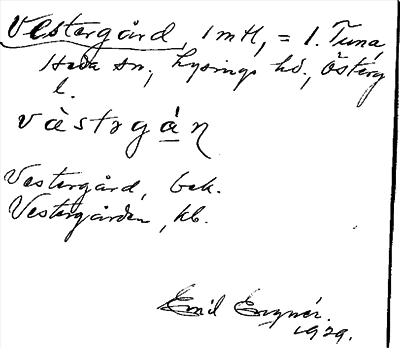 Vestergård, 1 mtl, = 1. Tuna,
Heda sn., Lysings hd., Österg
l.
vàstrgá̱n
Vestergård, bek.
Vestergården, kb.
Emil Engnér.
1929.